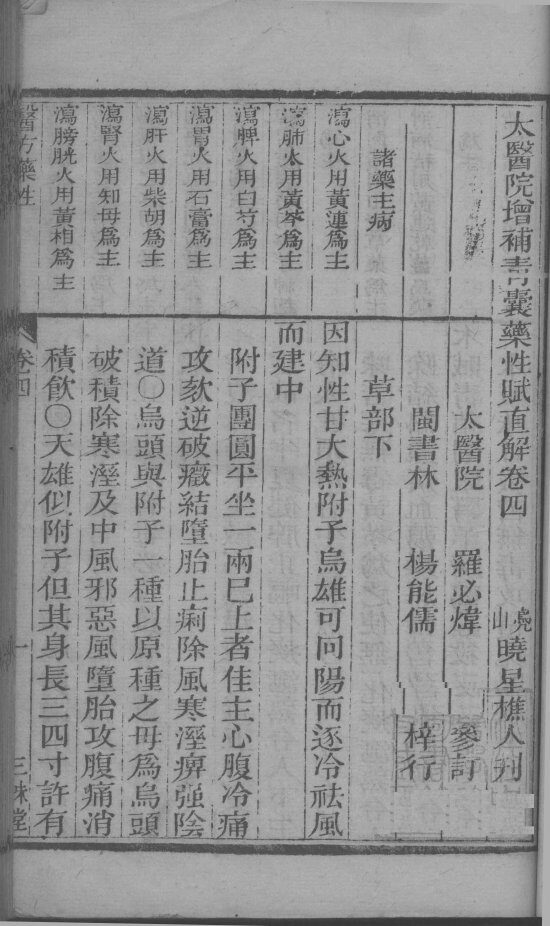 太醫院增補青囊藥性賦直解卷四
堯山曉星樵人刋
太醫院　羅必煒　參訂
閩書林　楊能儒　梓行
諸藥主病
瀉心火用黃連爲主
瀉肺火用黃芩爲主
瀉脾火用白芍爲主
瀉胃火用石膏爲主
瀉肝火用柴胡爲主
瀉腎火用知母爲主
瀉膀胱火用黃柏爲主
草部下
因知性甘大熱附子烏雄可回陽而逐冷祛風
而建中
附子團圓平坐一兩巳上者佳主心腹冷痛
攻欬逆破癥結墮胎止痢除風寒溼痹强陰
道○烏頭與附子一種以原種之母爲烏頭
破積除寒溼及中風邪惡風墮胎攻腹痛消
積飲○天雄似附子但其身長三四寸許有
醫方藥性
卷四
一
三味堂